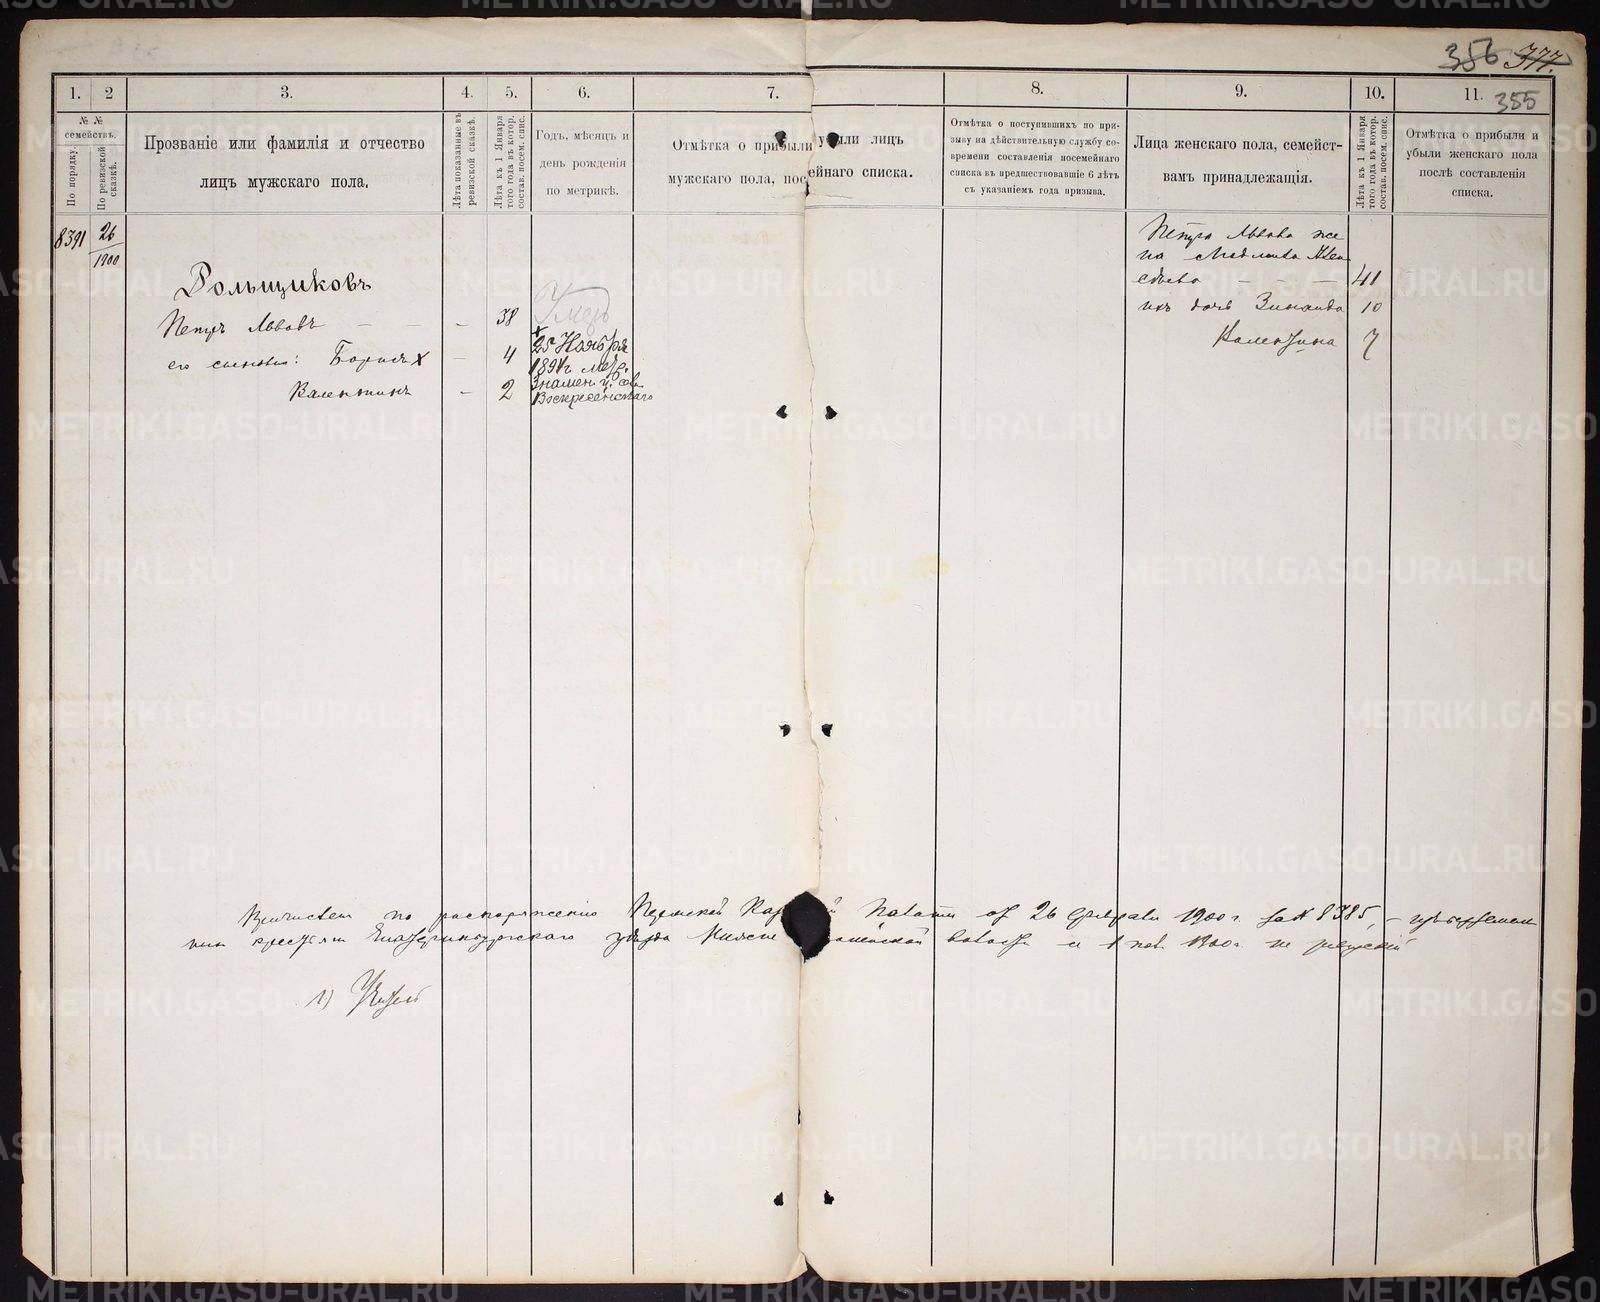 356 377.
355
1. 2 3. 4. 5. 6. 7. 8. 9. 10. 11.
№ №
семействъ.
По порядку.
По ревизской
сказкѣ.
Прозваніе или фамилія и отчество
лицъ мужскаго пола.
Лѣта показанные въ
ревизской сказкѣ.
Лѣта къ 1 Января
того года въ котор.
состав. посем. спис.
Годъ, мѣсяцъ и
день рожденія
по метрикѣ.
Отмѣтка о прибыли убыли лицъ
мужскаго пола, пос ейнаго списка.
Отмѣтка о поступившихъ по при-
зыву на дѣйствительную службу со-
времени составленія посемейнаго
списка въ предшествовавшіе 6 лѣтъ
съ указаніемъ года призыва.
Лица женскаго пола, семейст-
вамъ принадлежащія.
Лѣта къ 1 Января
того года въ котор.
состав. посем. спис.
Отмѣтка о прибыли и
убыли женскаго пола
послѣ составленія
списка.
8391 26
1900
Рольщиковъ
Петръ Львовъ — — — 38 Умеръ
его сыновья: Борисъ — 4
Валентинъ — 2
25 Ноября
189 г. метр.
Знамен. ц. с.
Воскресенскаго
Петра Львова же
на
— — — 41
ихъ дочь Зинаида 10
Валентина 7
по распоряженію Пермской Ка й Палаты от 26 Февраля 1900 г. за № 8385, — изъ
крестьян Екатеринбургскаго уѣзда волости с 1 1900 г. по
METRIKI.GASO-URAL.RU